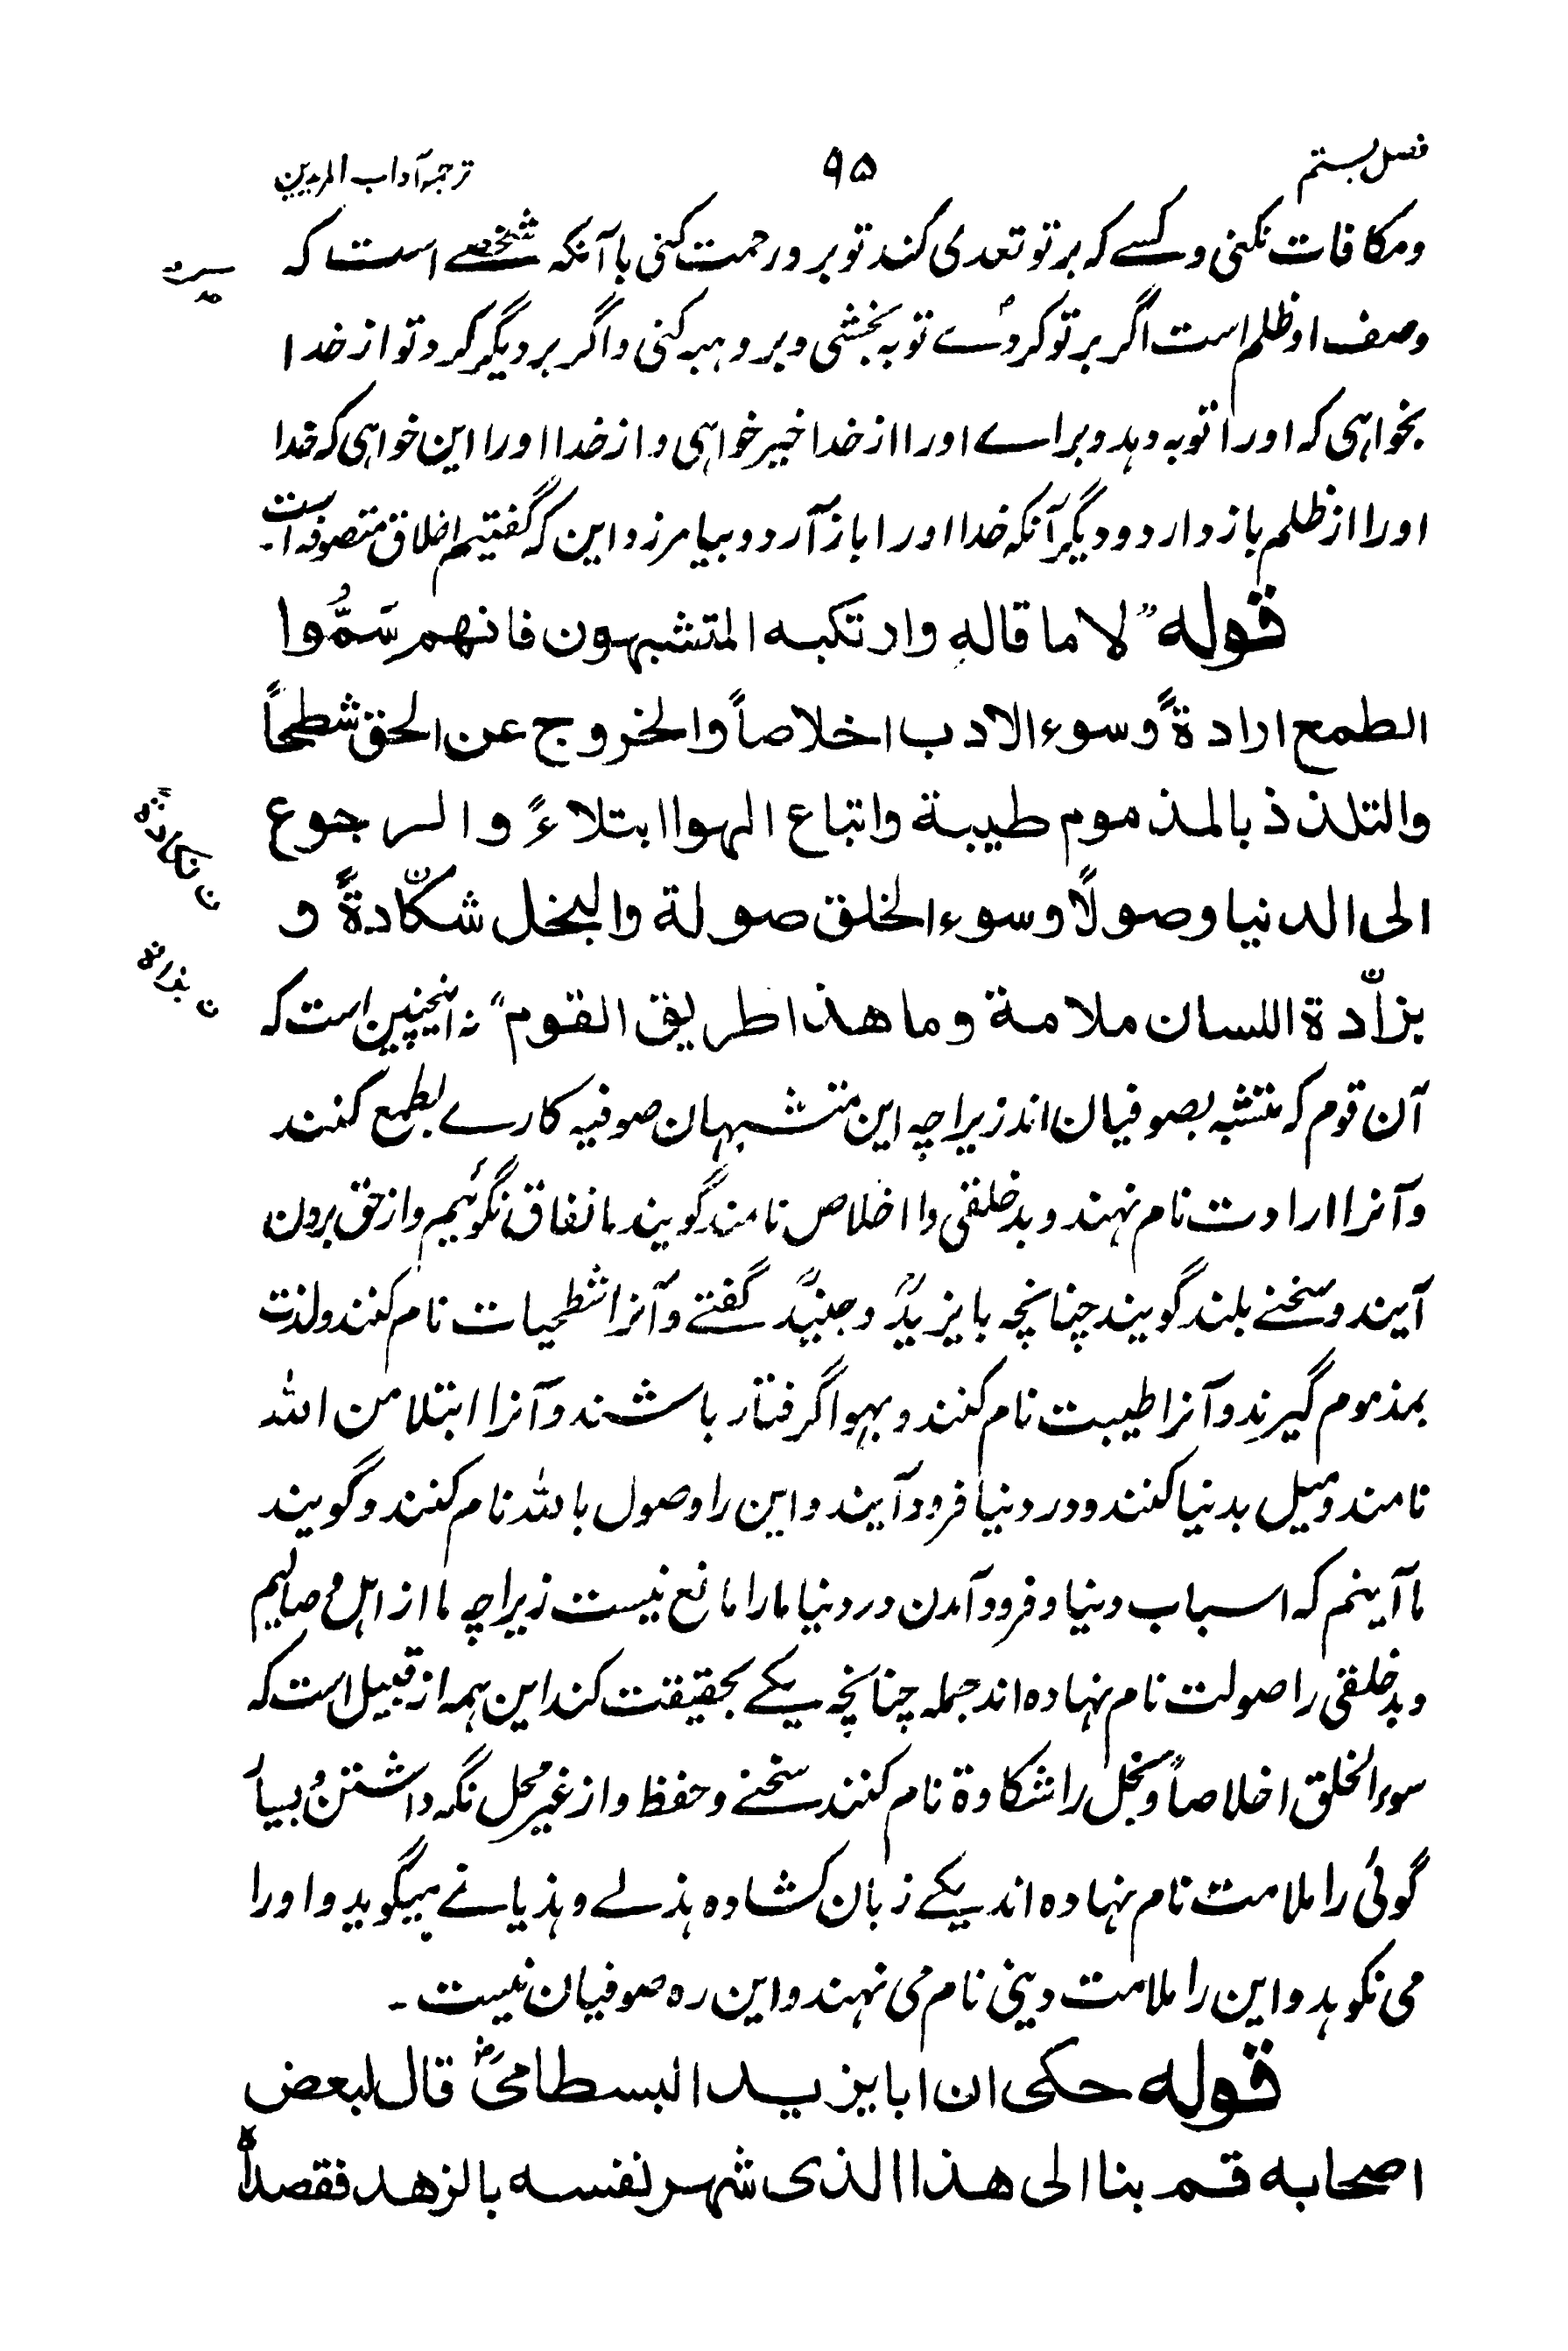 فصل بستم ۹۵ ترجمہ آداب المریدین
ومکافات نکنی وکسے کہ بر تو تعدی کند تو برو رحمت کنی باآنکہ شخصے است کہ
وصف او ظلم است اگر بر تو کردے تو بہ بخشی و برو ہبہ کنی و اگر بر دیگر کرد تو از خدا
بخواہی کہ اورا توبہ دہد و براے اورا از خدا خیر خواہی و از خدا اورا این خواہی کہ خدا
اورا از ظلم باز دارد و دیگر آنکہ خدا اورا باز آرد و بیامرزد این کہ گفتیم اخلاق متصوفہ است۔
قوله " لا ما قاله وارتکبه المتشبهون فانهم سَمُّوا
الطمع ارادةً وسوء الادب اخلاصاً والخروج عن الحق شطحاً
والتلذذ بالمذموم طیبة واتباع الهوا ابتلاءً والرجوع
الی الدنیا وصولاً وسوء الخلق صولة والبخل شکّادةً و
ن نکادةً
بزاّدة اللسان ملامة وما هذا طریق القوم" نہ اینچنین است کہ
ن بذاة
آن قوم کہ متشبہ بصوفیان اند زیراچہ این متشبہان صوفیہ کارے بطمع کنند
و آنرا ارادت نام نہند و بدخلقی را اخلاص نامند گویند ما نفاق نگوئیم و از حق برون
آیند و سخنے بلند گویند چنانچہ بایزیدؒ و جنیدؒ گفتے و آنرا شطحیات نام کنند و لذت
بمذموم گیرند و آنرا طیبت نام کنند و بہوا گرفتار باشند و آنرا ابتلا من اللہ
نامند و میل بدنیا کنند و در دنیا فرود آیند و این را وصول باللہ نام کنند و گویند
ما آینم کہ اسباب دنیا و فرود آمدن در دنیا مارا مانع نیست زیراچہ ما از اہل وصالیم
و بدخلقی را صولت نام نہادہ اند جملہ چنانچہ یکے بحقیقت کند این ہمہ از قبیل است کہ
سوء الخلق اخلاصاً و بخل را شکادة نام کنند سخنے و حفظ و از غیر محل نگہ داشتن و بسیار
گوئی را ملامت نام نہادہ اند یکے زبان کشادہ ہذلے و ہذیانے میگوید و اورا
می نکوہد و این را ملامت دینی نام می نہند و این رہ صوفیان نیست ۔
قوله حکی ان ابا یزید البسطامیؒ قال لبعض
اصحابه قم بنا الی هذا الذی شهر نفسه بالزهد فقصداه